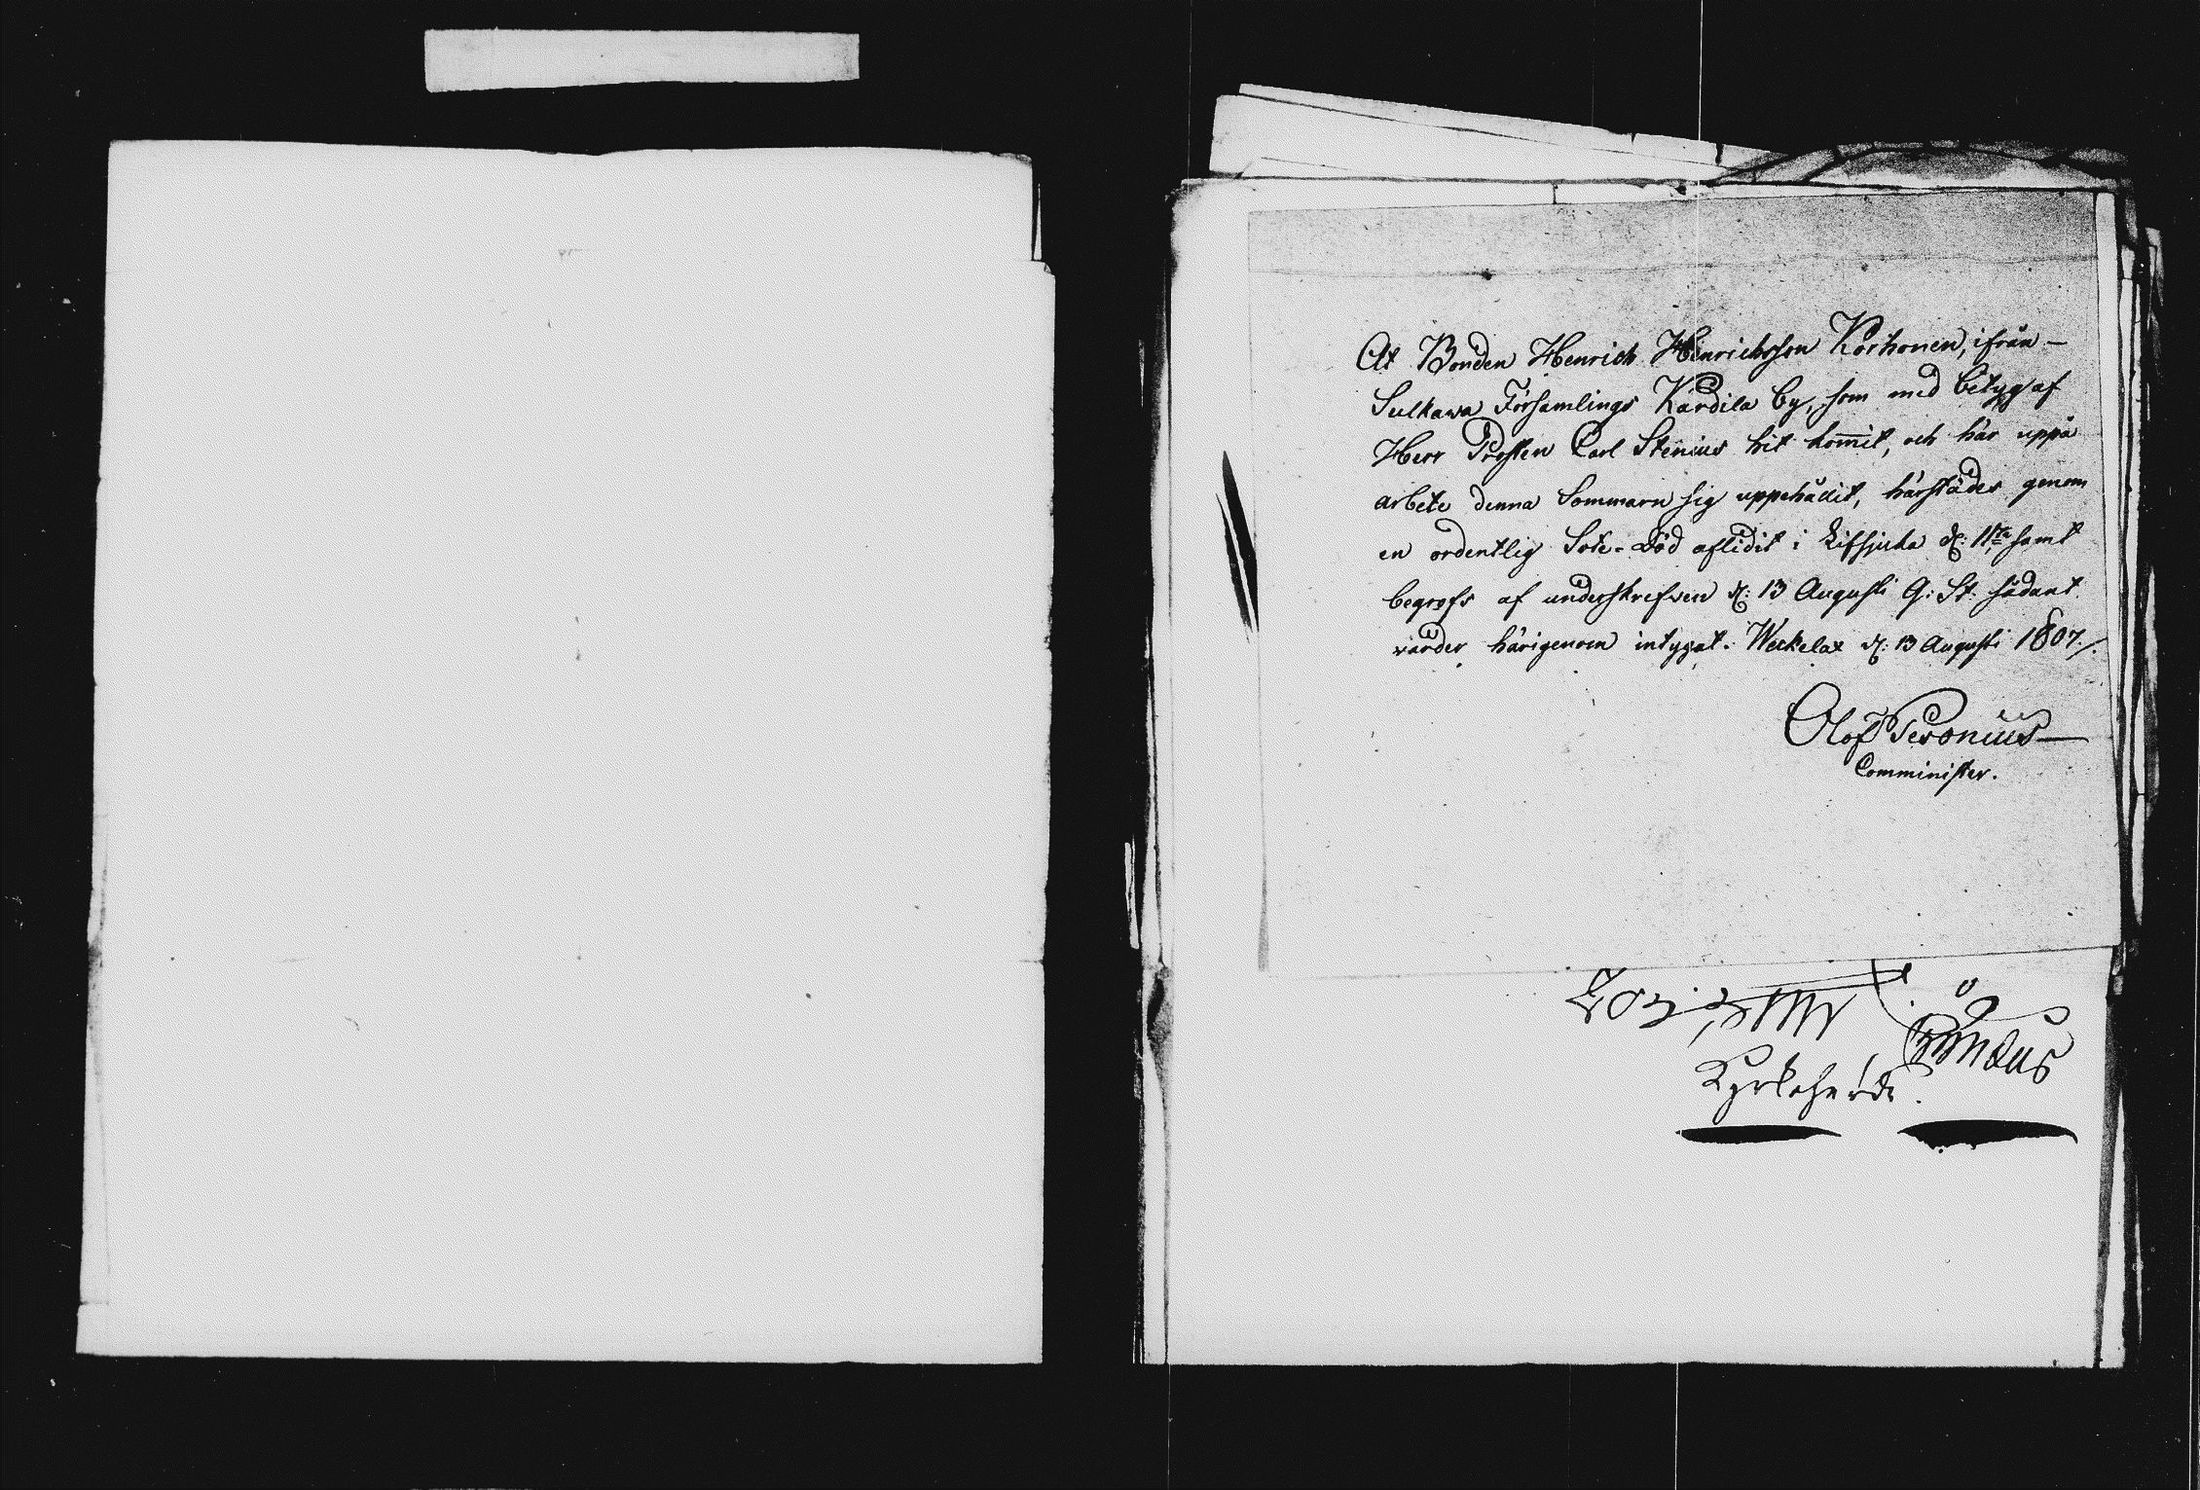 At Bonden Henrich Hinrichsson Korhonen, ifrån –
Sulkawa Församlings Kärdila by, som med betyg af
Herr Prosten Carl Stenius hit kom̅it, och här uppå
arbete denna Sommarn sig uppehållit, härstädes genom
en ordentlig Sote-död aflidit i Rifsjuka d: 11te samt
begrofs af underskrefven d: 13 Augusti G: St. sådant
värder härigenom intygat. Weckelax d: 13 Augusti 1807./.
Olof Peronius
Comminister.
Kyrkoherde.